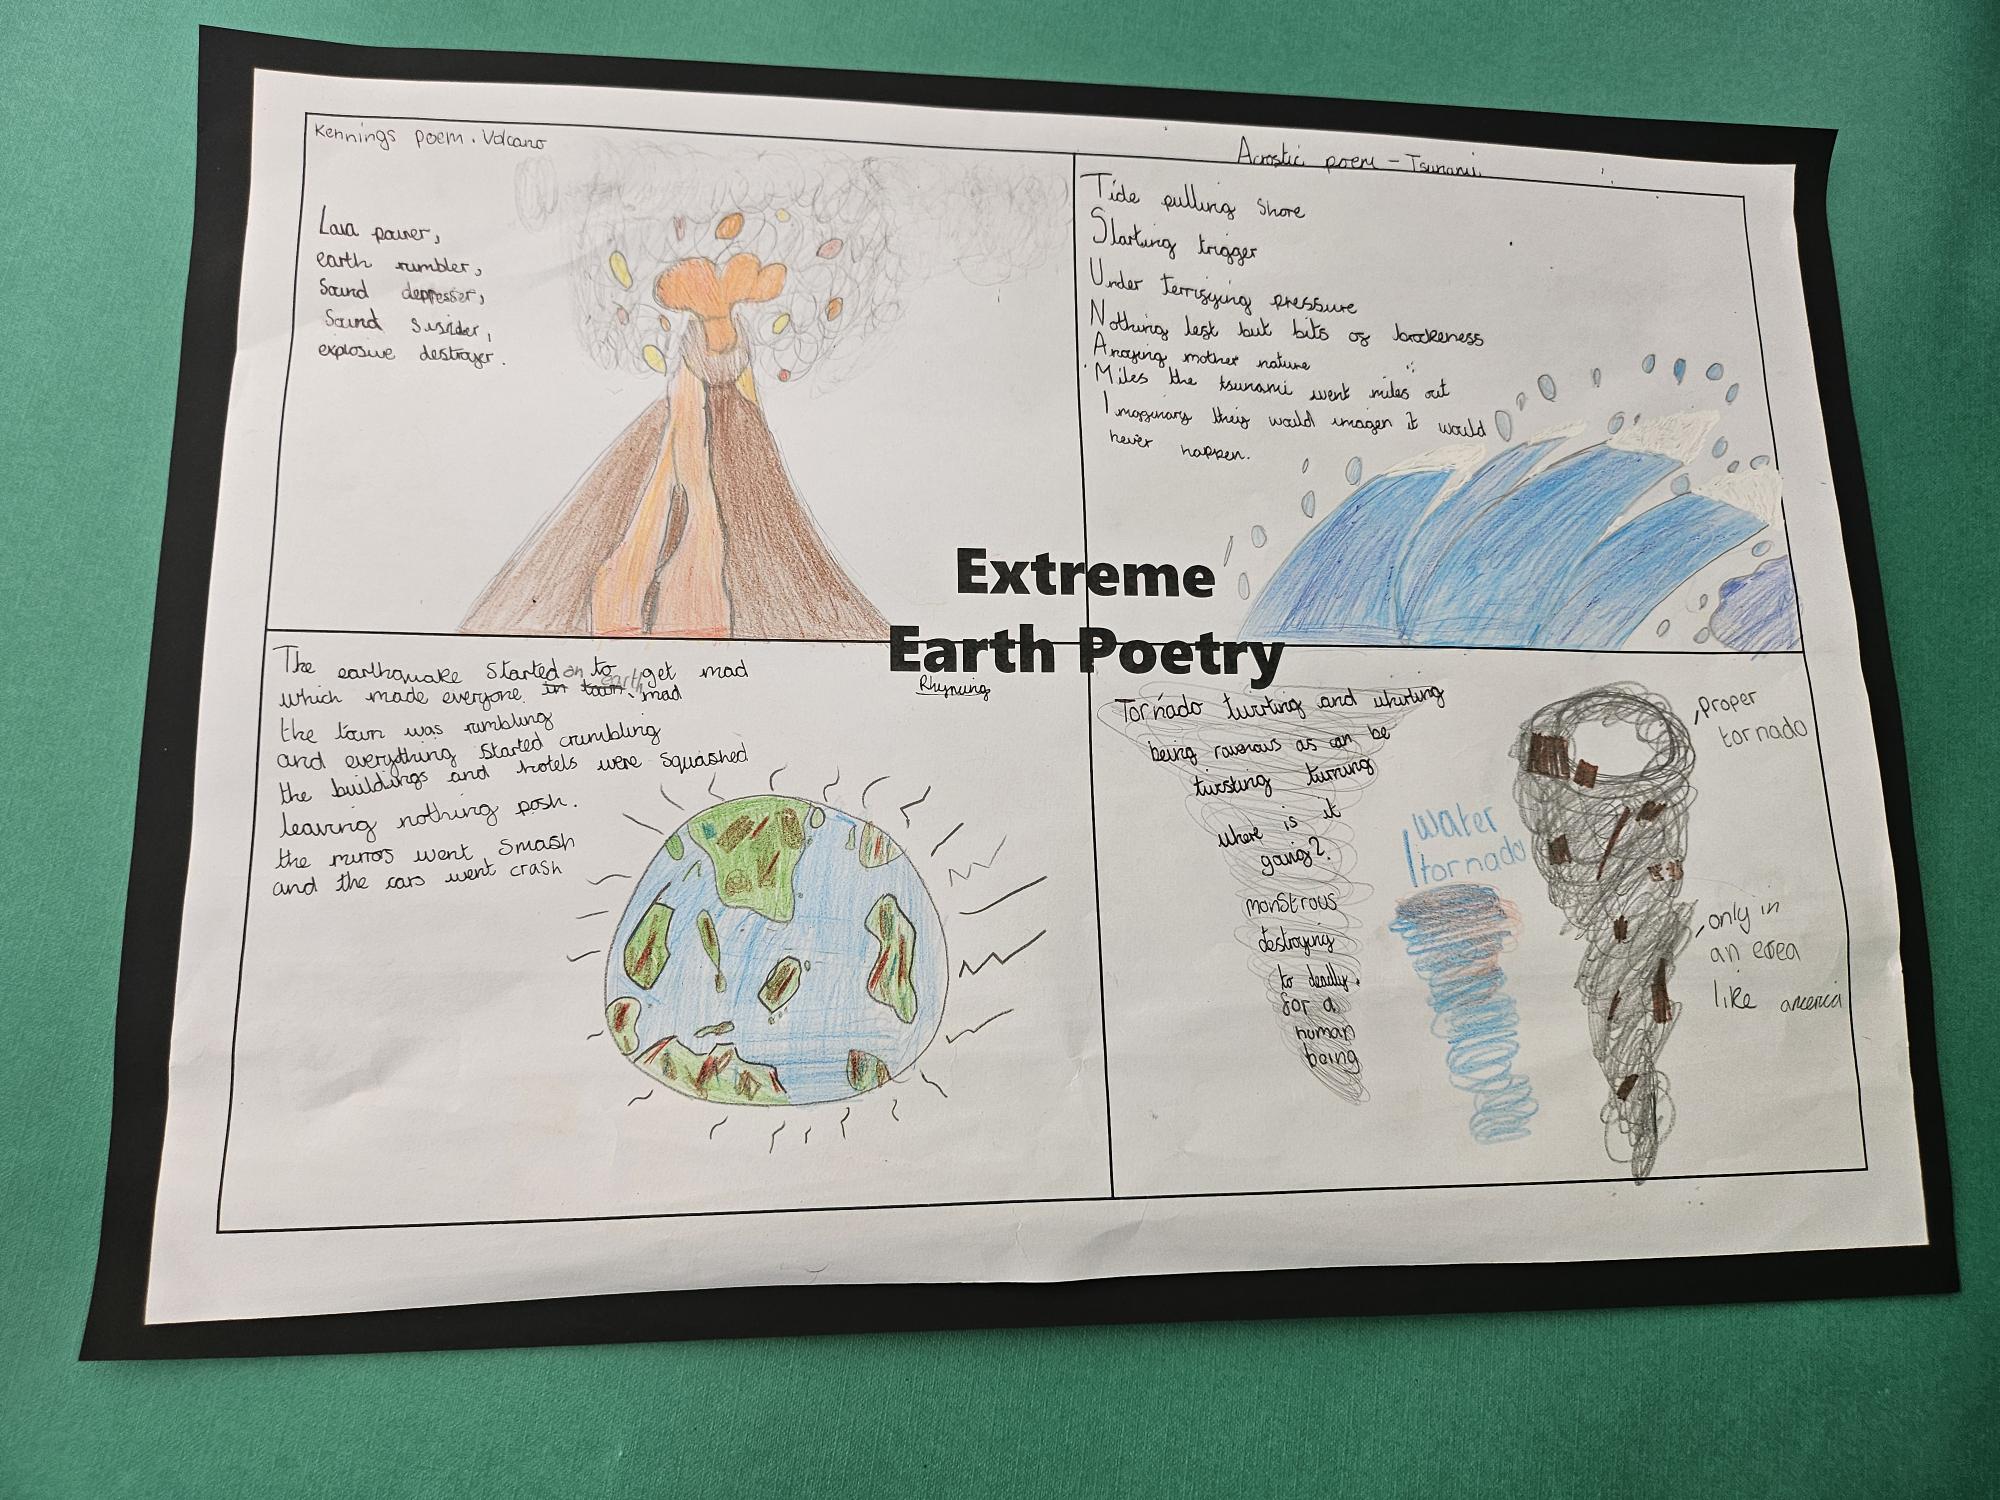 Kennings poem. Volcano
Lava pourer,
earth rumbler,
Sound depresser,
Sound
explosive destroyer.
Acrostic poem - Tsunami
Tide pulling shore
Starting trigger
Under terrifying pressure
Nothing left but bits of brokeness
Anoying mother nature
Miles the tsunami went miles out
Imaginary they would imagen it would
never happen.
Extreme
Earth Poetry
Rhyming
The earthquake started to get mad
which made everyone on earth mad
the town was rumbling
and everything started crumbling
the buildings and hotels were squashed
leaving nothing posh.
the mirrors went smash
and the cars went crash
Tornado twirting and whirling
being ravenous as can be
twisting turning
where is it
going?
monstrous
destroying
to deadly.
for a
human
being
water
tornado
proper
tornado
only in
an erea
like america